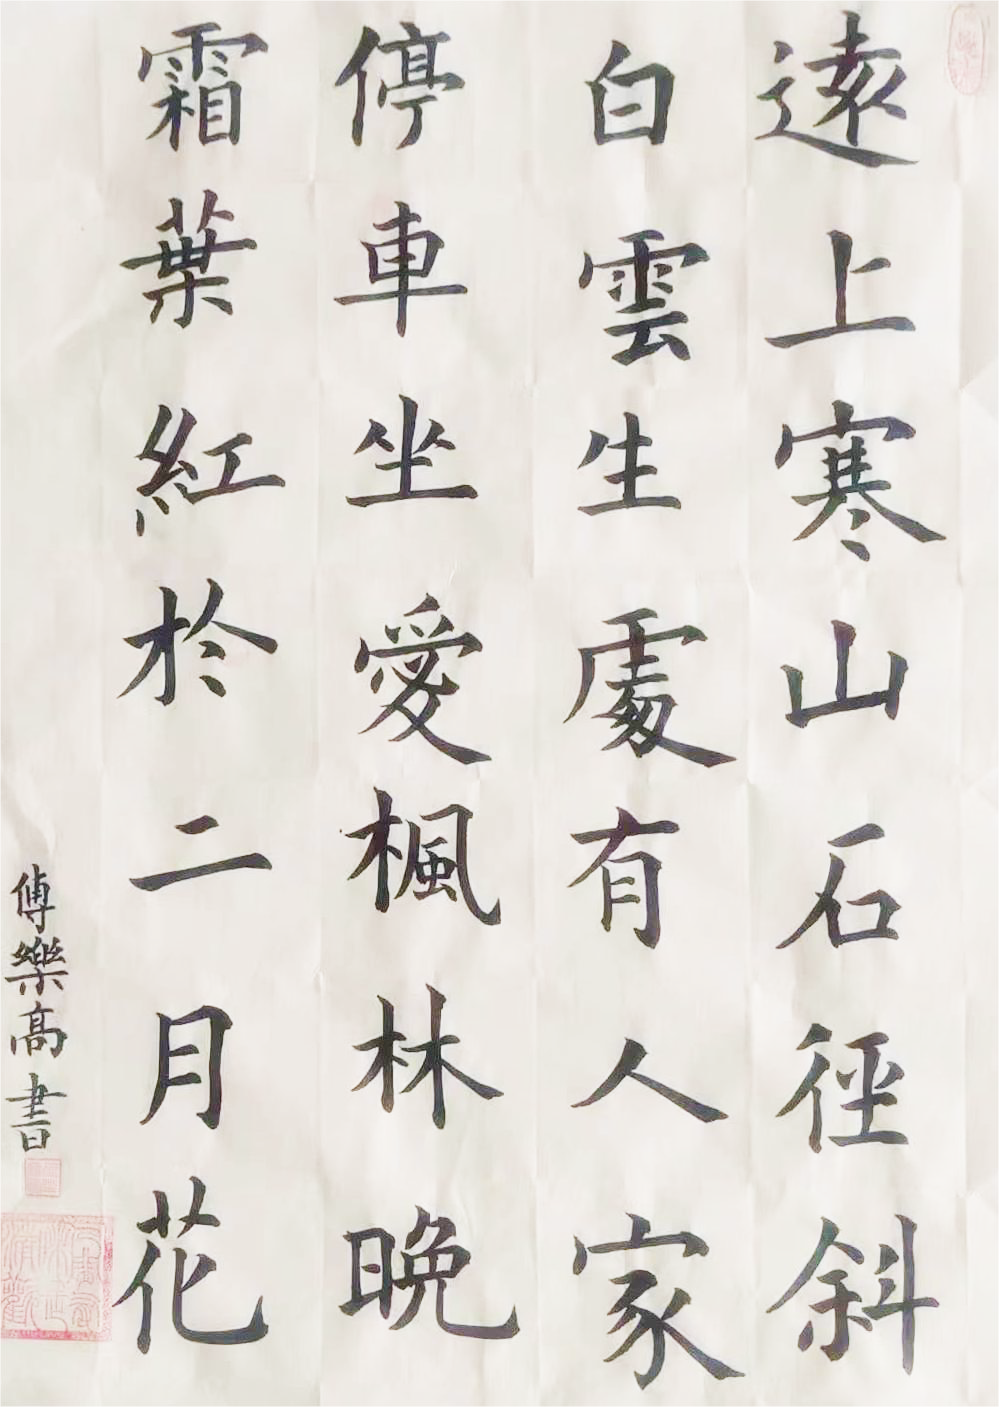 遠上寒山石徑斜
白雲生處有人家
停車坐愛楓林晚
霜葉紅於二月花
傅樂高書